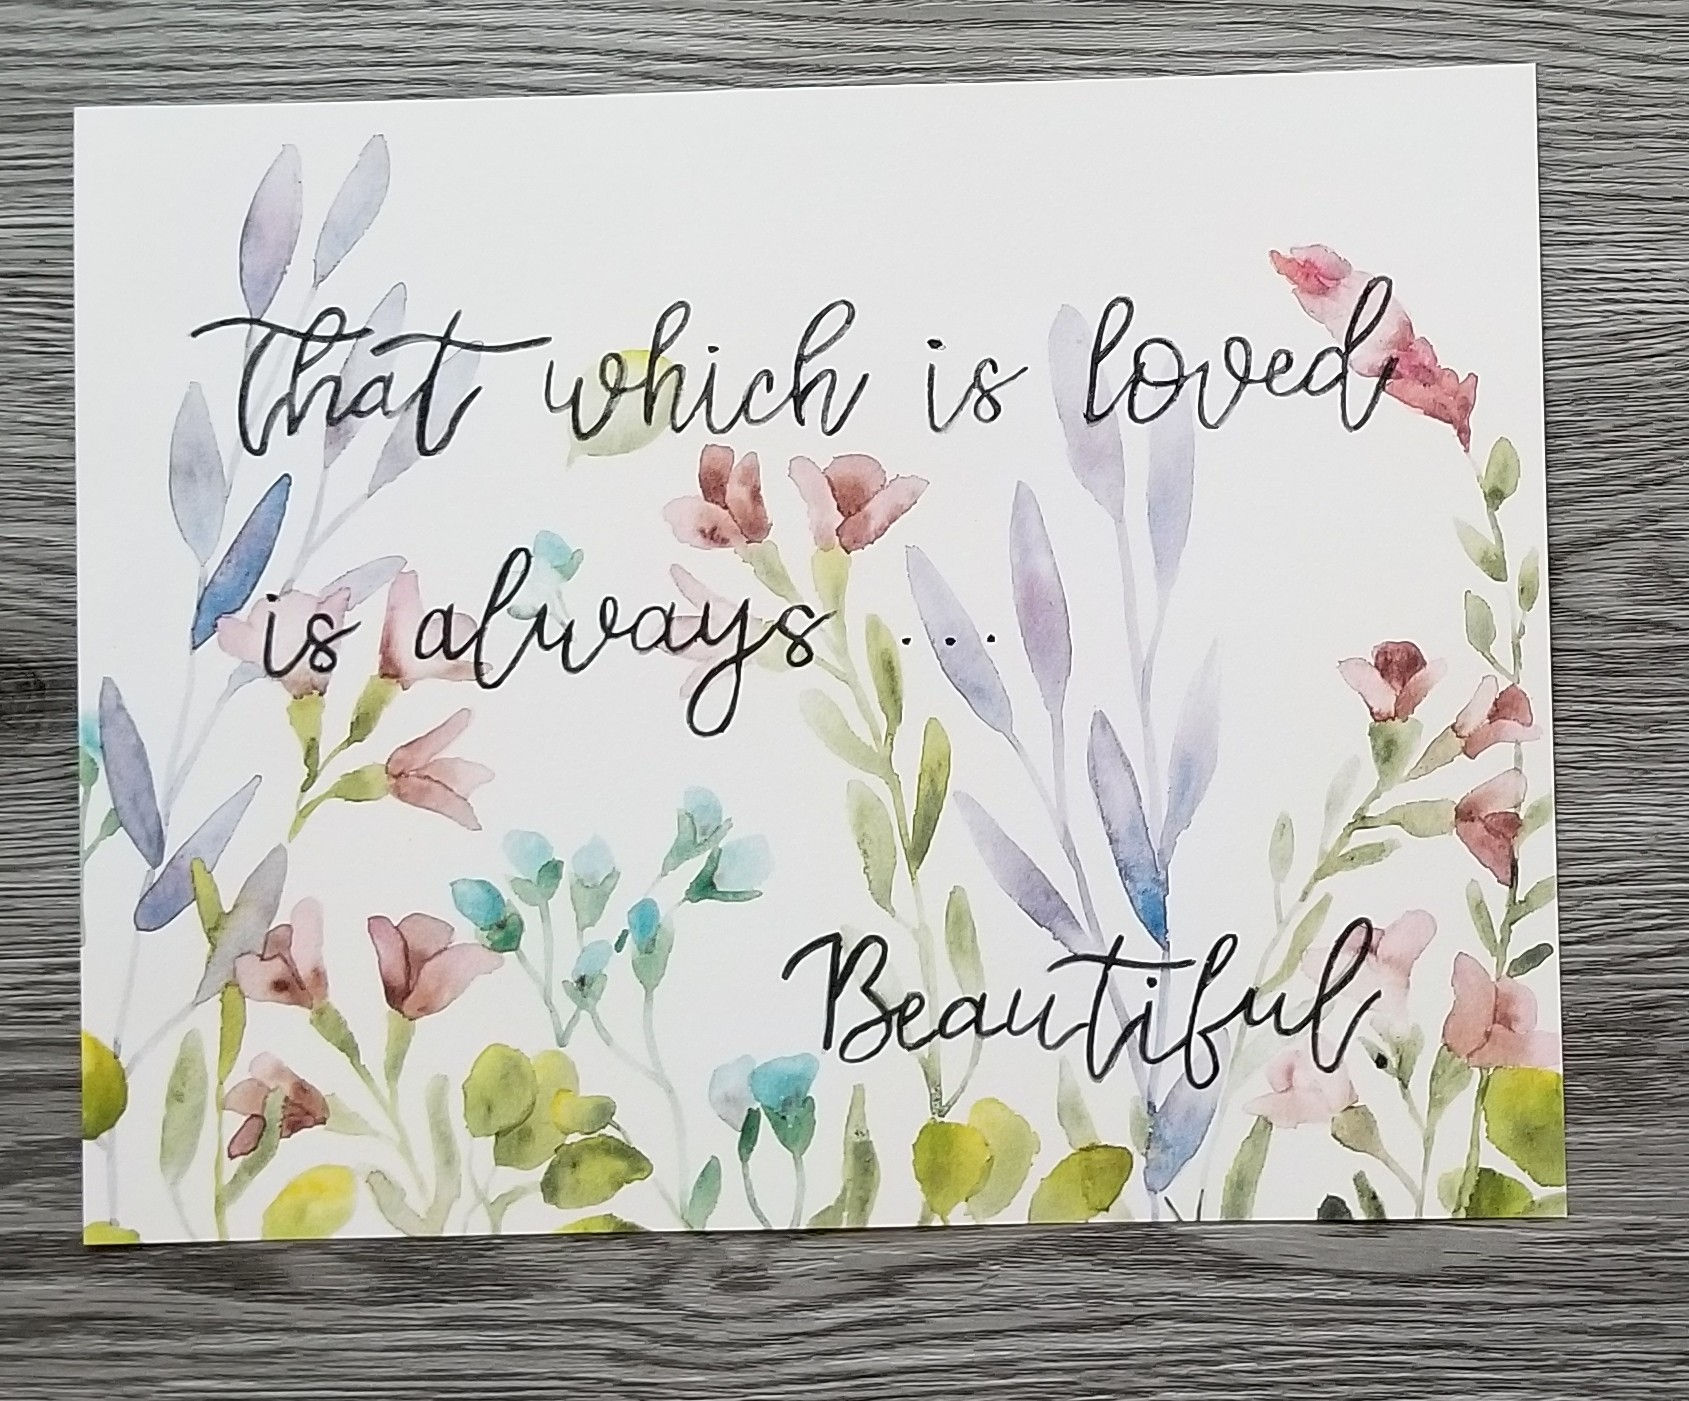 that which is loved
is always ...
Beautiful.